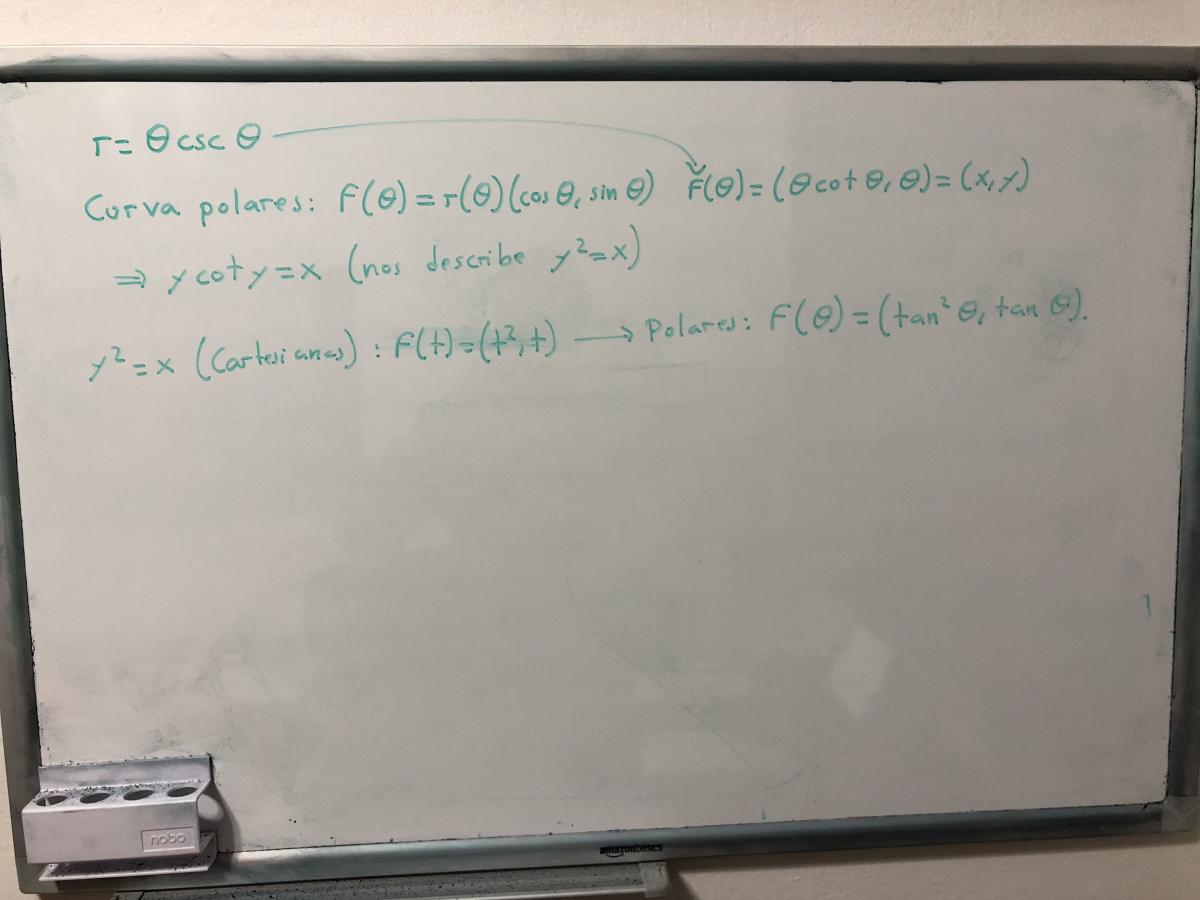 r = θ csc θ
Curva polares: F(θ) = r(θ)(cos θ, sin θ) F(θ) = (θ cot θ, θ) = (x, y)
⇒ y cot y = x (nos describe y² = x)
y² = x (Cartesianas) : F(t) = (t², t) → Polares: F(θ) = (tan² θ, tan θ).
nobo
amazonbasics